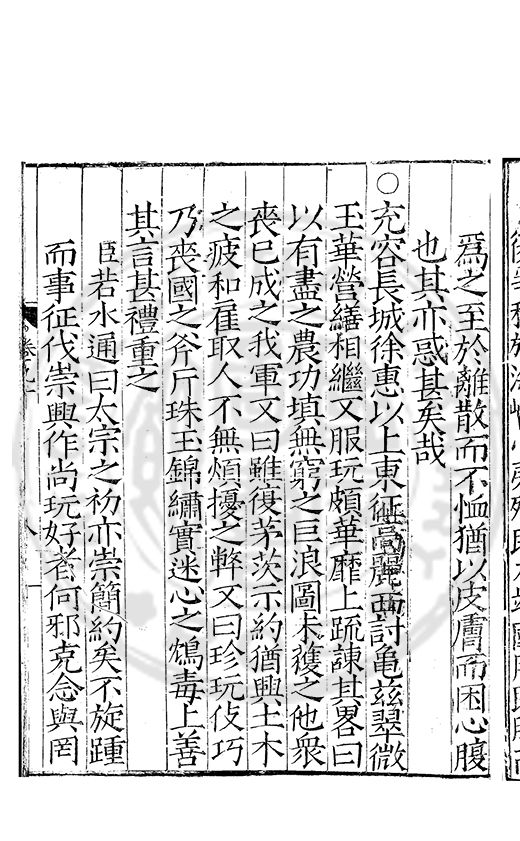 爲之至於離散而不恤猶以皮膚而困心腹
也其亦惑甚矣哉
○充容長城徐惠以上東征高麗西討龜兹翠微
玉華營繕相繼又服玩頗華靡上疏諫其畧曰
以有盡之農功填無窮之巨浪圖未獲之他衆
喪已成之我軍又曰雖復茅茨示約猶興土木
之疲和雇取人不無煩擾之弊又曰珍玩伎巧
乃喪國之斧斤珠玉錦繡實迷心之鴆毒上善
其言甚禮重之
臣若水通曰太宗之初亦崇簡約矣不旋踵
而事征伐崇興作尚玩好者何邪克念與罔